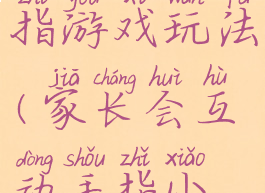 zhǐ yóu xì wán fǎ
指游戏玩法
jiā cháng huì hù
(家长会互
dòng shǒu zhǐ xiǎo
动手指小